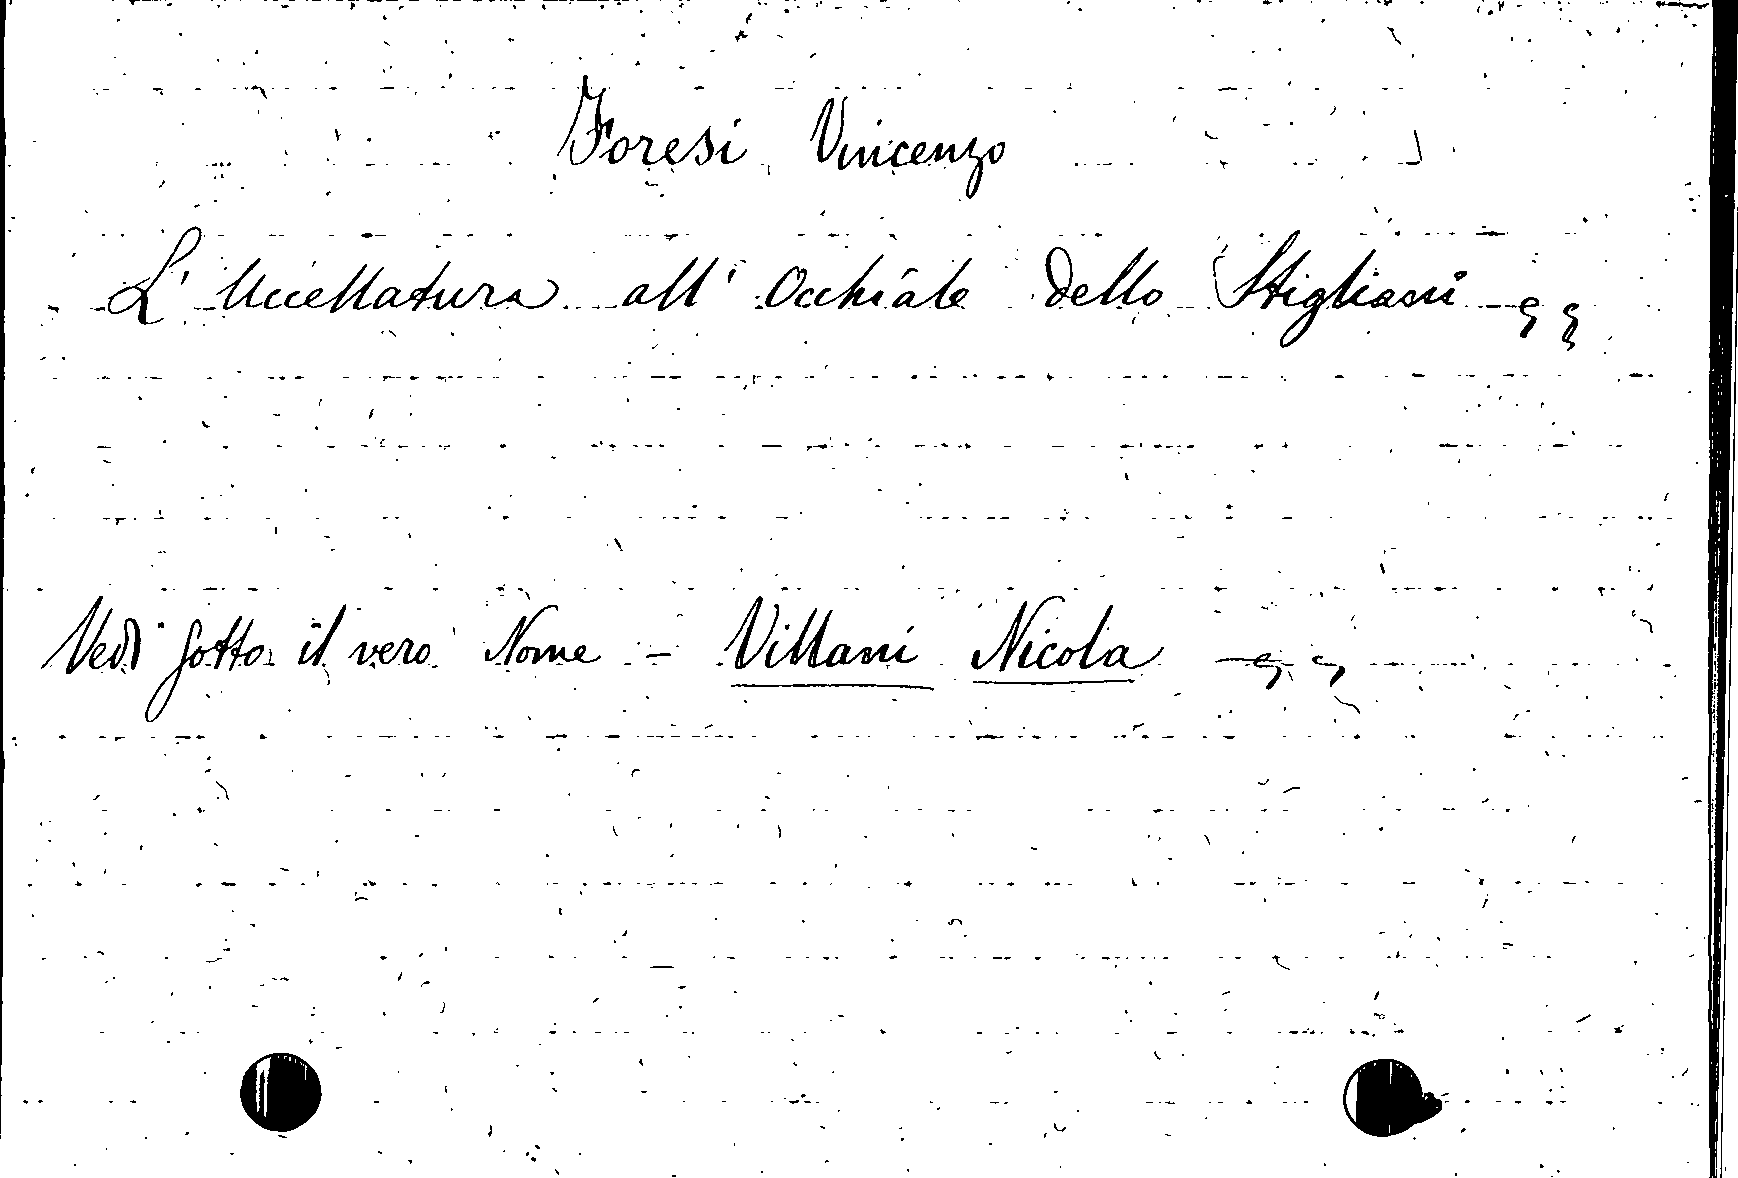 Foresi Vincenzo
L'Uccellatura all'Occhiale dello Stigliani
Vedi sotto il vero Nome - Villani Nicola